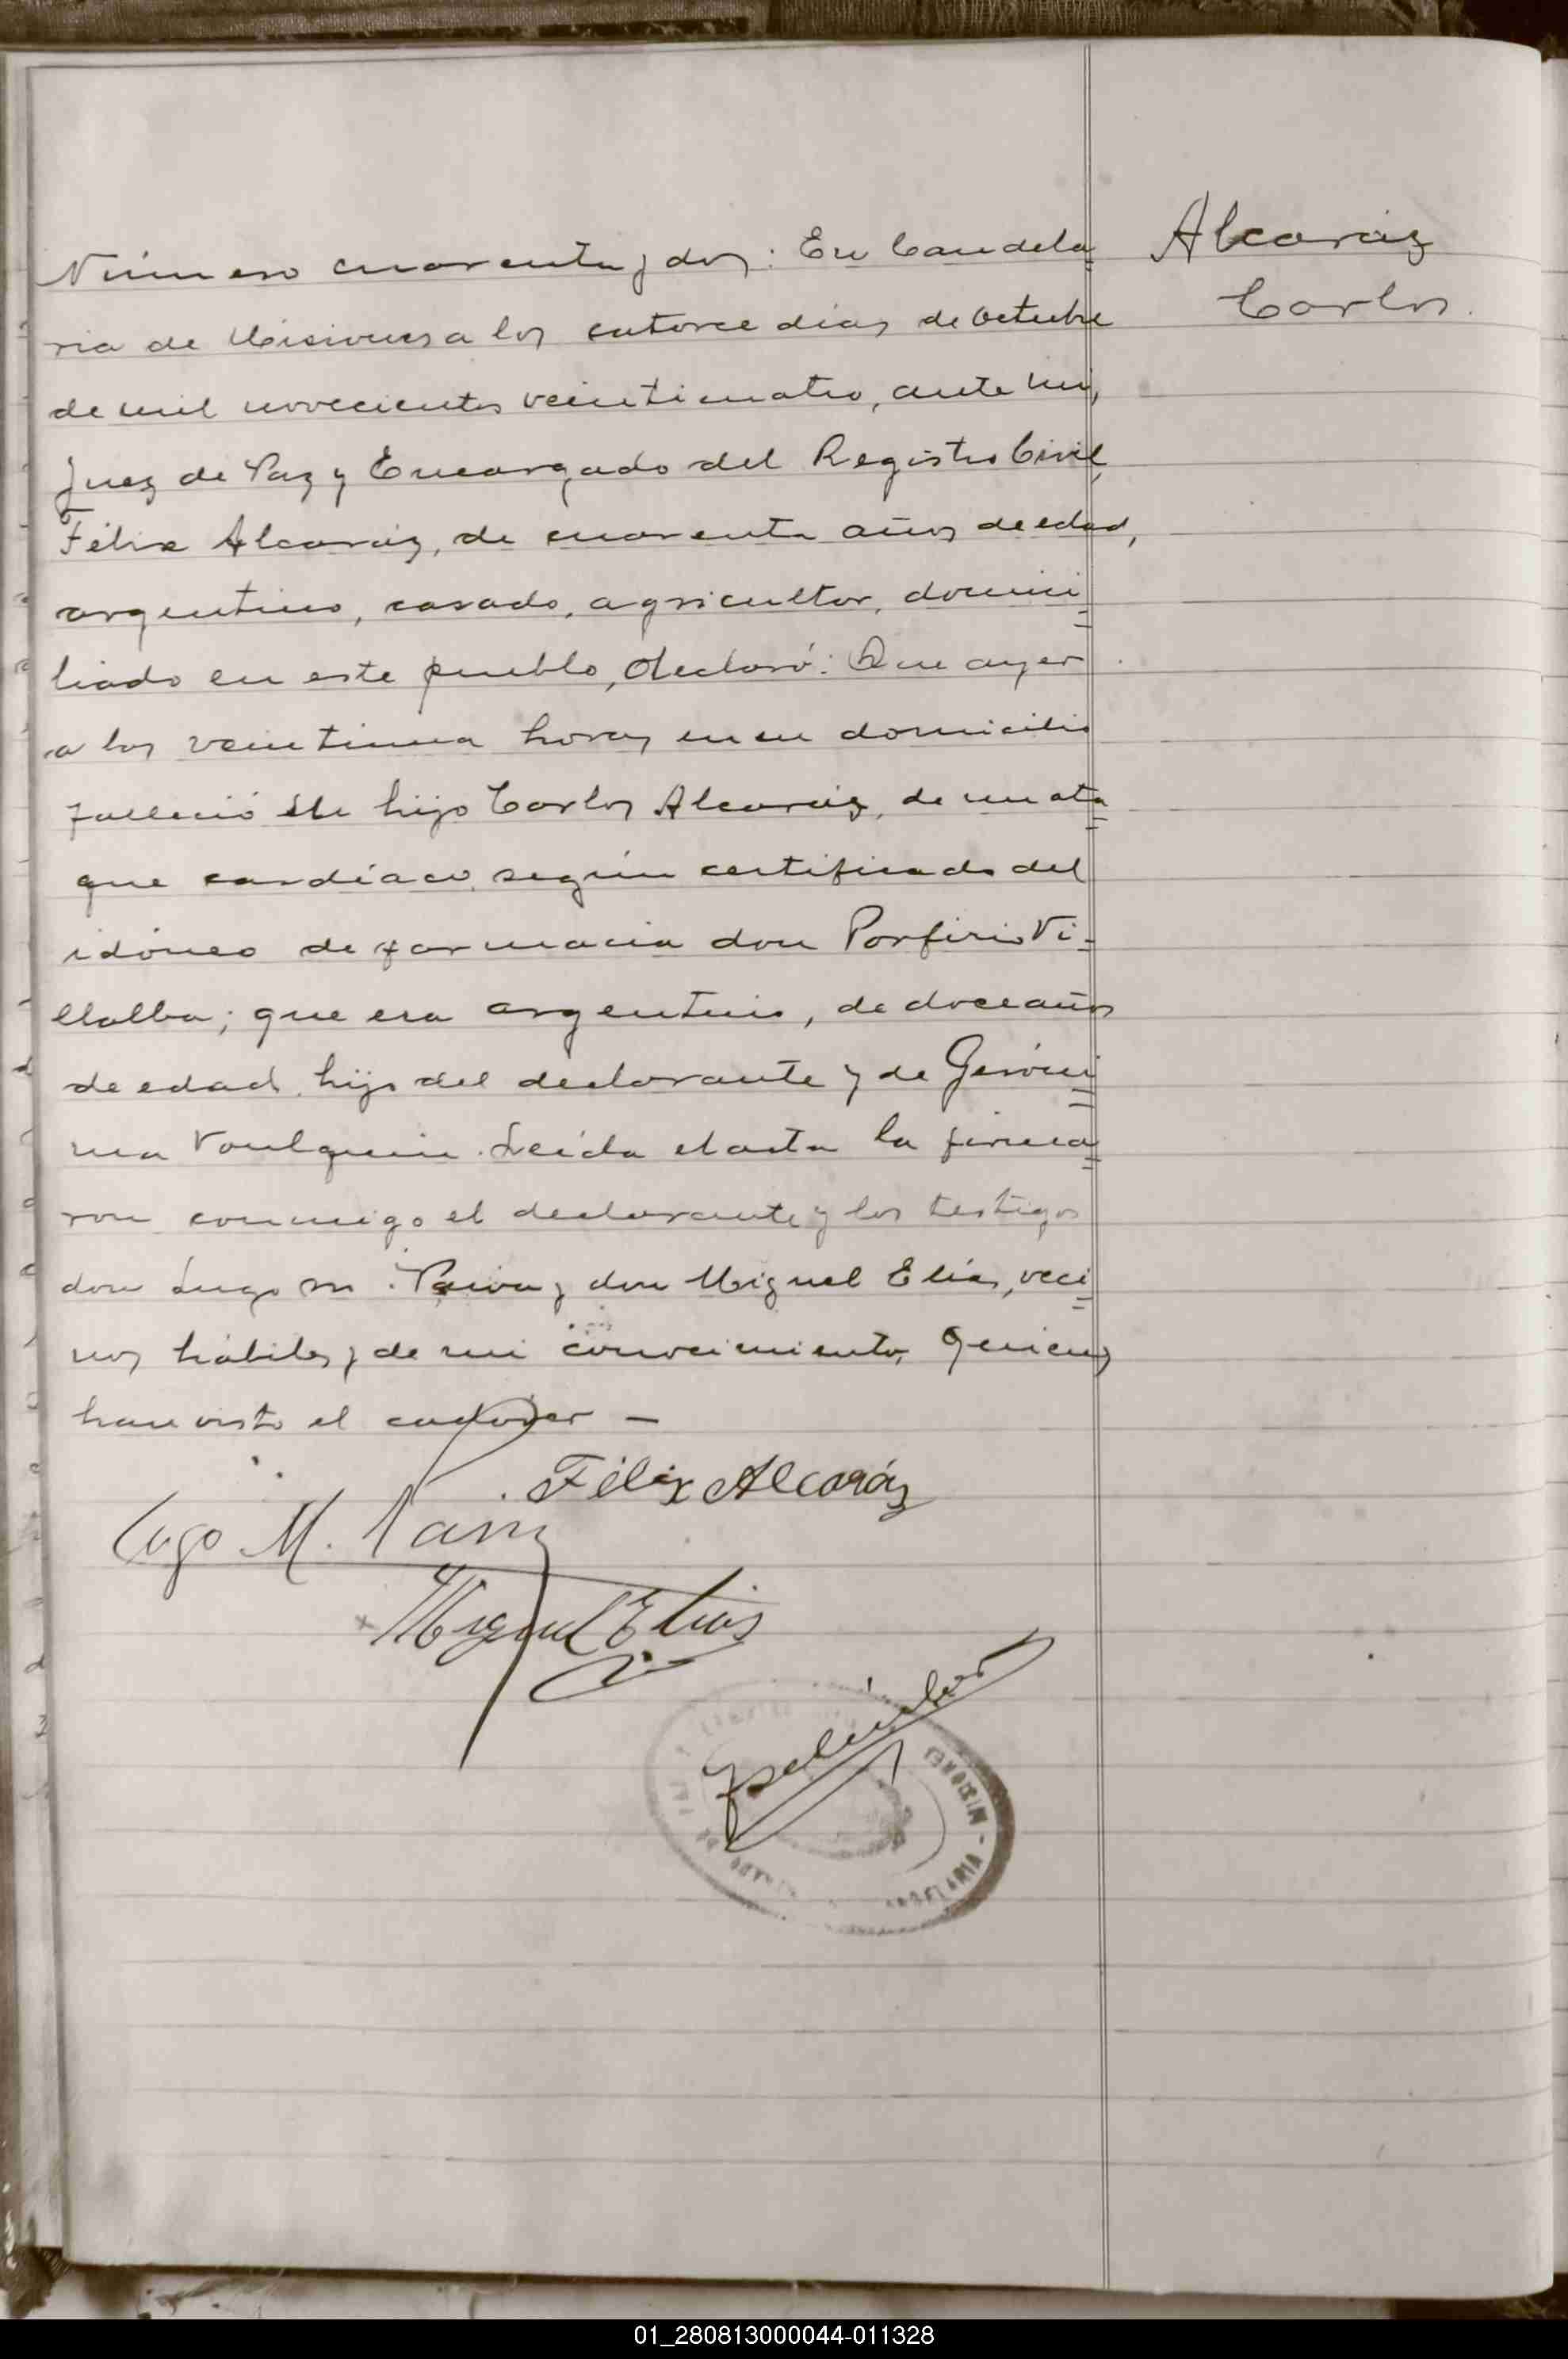 Alcaráz
Carlos.
Número cuarenta y dos: En Candela=
ria de Misiones a los catorce días de Octubre
de mil novecientos veinticuatro, ante mi,
Juez de Paz y Encargado del Registro Civil,
Félix Alcaráz, de cuarenta años de edad,
argentino, casado, agricultor, domici=
liado en este pueblo, declaró: Que ayer
a las veintiuna horas en su domicilio
falleció su hijo Carlos Alcaráz, de un ata=
que cardíaco, según certificado del
idóneo de farmacia don Porfirio Vi=
llalba; que era argentino, de doce años
de edad, hijo del declarante y de Geróni=
ma Voulquin. Leída el acta la firma=
ron conmigo el declarante y los testigos
don Lugo M. Paiva y don Miguel Elías, veci=
nos hábiles y de mi conocimiento, quienes
han visto el cadáver —
Félix Alcaráz
Lugo M.
Miguel Elias
MISIONES
01_280813000044-011328